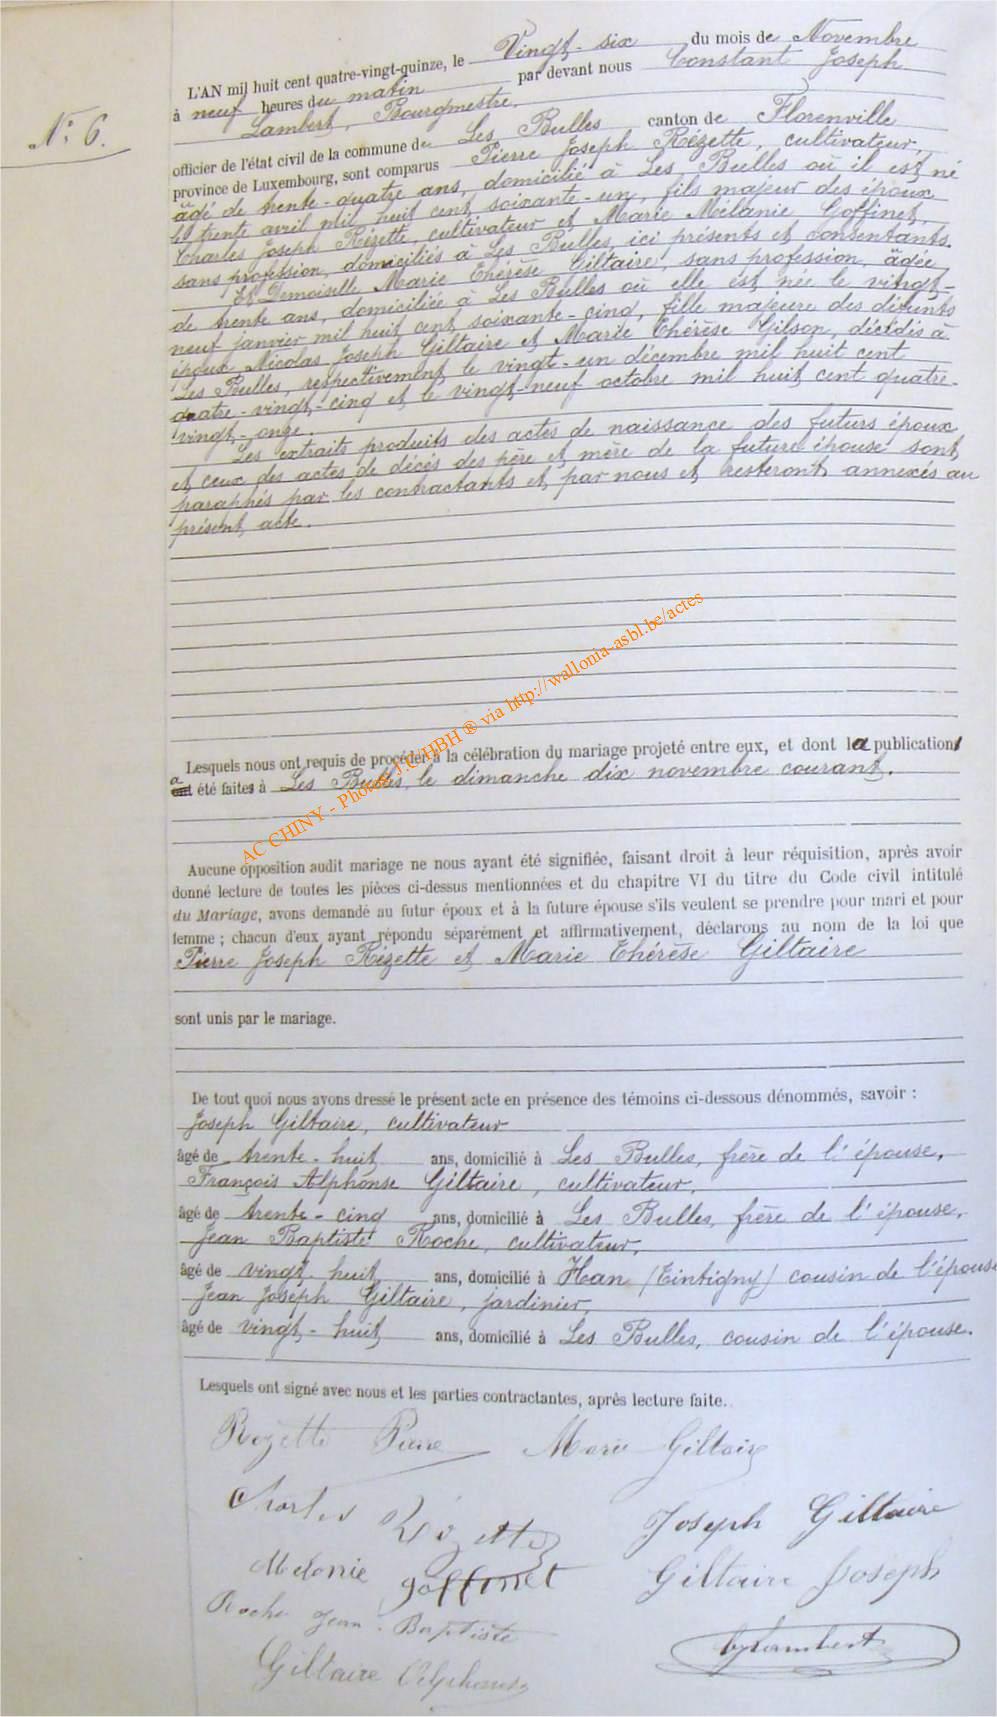 N° 6.
L'AN mil huit cent quatre-vingt-quinze, le Vingt-six du mois de Novembre
à neuf heures du matin par devant nous Constant Joseph
Lambert, Bourgmestre,
officier de l'état civil de la commune de Les Bulles canton de Florenville
province de Luxembourg, sont comparus Pierre Joseph Rézette, cultivateur,
âgé de trente-quatre ans, domicilié à Les Bulles où il est né
le trente avril mil huit cent soixante-un, fils majeur des époux
Charles Joseph Rézette, cultivateur et Marie Mélanie Goffinet,
sans profession, domiciliés à Les Bulles, ici présents et consentants.
Et Demoiselle Marie Thérèse Giltaire, sans profession, âgée
de trente ans, domiciliée à Les Bulles où elle est née le vingt-
neuf janvier mil huit cent soixante-cinq, fille majeure des défunts
époux Nicolas Joseph Giltaire et Marie Thérèse Gilson, décédés à
Les Bulles, respectivement le vingt-un décembre mil huit cent
quatre-vingt-cinq et le vingt-neuf octobre mil huit cent quatre-
vingt-onze.
Les extraits produits des actes de naissance des futurs époux
et ceux des actes de décès des père et mère de la future épouse sont
paraphés par les contractants et par nous et resteront annexés au
présent acte.
Lesquels nous ont requis de procéder à la célébration du mariage projeté entre eux, et dont la publication
a été faite à Les Bulles, le dimanche dix novembre courant.
AC CHINY - Photos J.C.HBH ® via http://wallonia-asbl.be/actes
Aucune opposition audit mariage ne nous ayant été signifiée, faisant droit à leur réquisition, après avoir
donné lecture de toutes les pièces ci-dessus mentionnées et du chapitre VI du titre du Code civil intitulé
du Mariage, avons demandé au futur époux et à la future épouse s'ils veulent se prendre pour mari et pour
femme ; chacun d'eux ayant répondu séparément et affirmativement, déclarons au nom de la loi que
Pierre Joseph Rézette et Marie Thérèse Giltaire
sont unis par le mariage.
De tout quoi nous avons dressé le présent acte en présence des témoins ci-dessous dénommés, savoir :
Joseph Giltaire, cultivateur
âgé de trente-huit ans, domicilié à Les Bulles, frère de l'épouse,
François Alphonse Giltaire, cultivateur,
âgé de trente-cinq ans, domicilié à Les Bulles, frère de l'épouse,
Jean Baptiste Roche, cultivateur,
âgé de vingt-huit ans, domicilié à Han (Tintigny) cousin de l'épouse
Jean Joseph Giltaire, jardinier,
âgé de vingt-huit ans, domicilié à Les Bulles, cousin de l'épouse.
Lesquels ont signé avec nous et les parties contractantes, après lecture faite.
Rezette Pierre Marie Giltaire
Charles Rézette Joseph Giltaire
Melanie goffinet Giltaire Joseph
Roche Jean-Baptiste
Lambert
Giltaire Alphonse